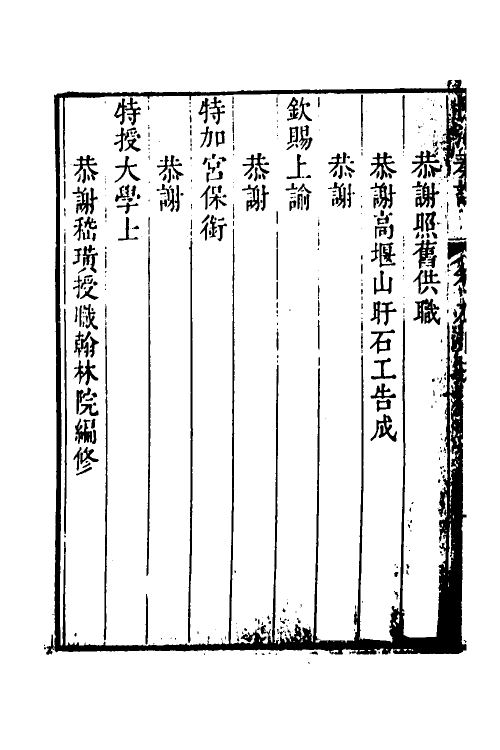 恭謝照舊供職
恭謝高堰山盱石工告成
恭謝
欽賜上諭
恭謝
特加宮保銜
恭謝
特授大學士
恭謝嵇璜授職翰林院編修